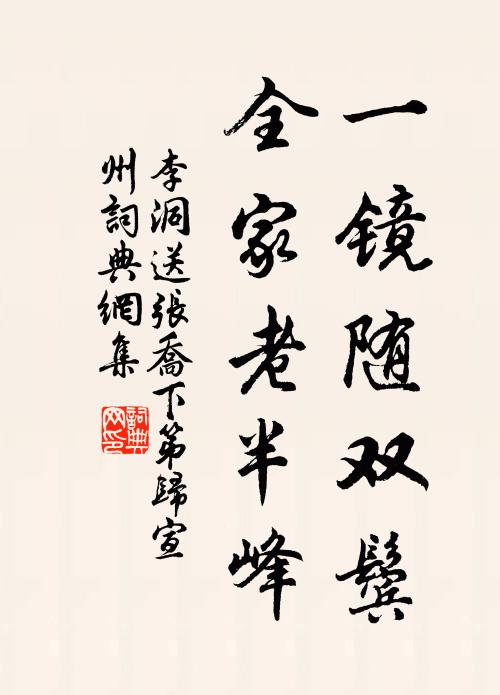 一镜随双鬓
全家老半峰
李洞送張喬下第歸宣
州詞典網集
詞典
网印